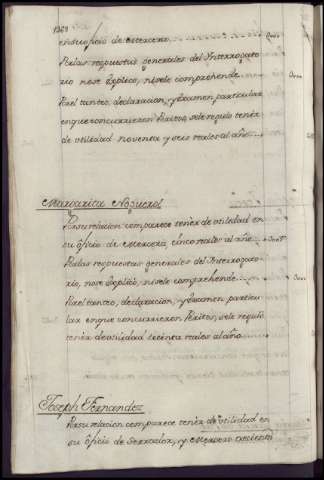 en su oficio de estercero.
Por las respuestas generales del Interrogato-
rio no se explicó, ni se le comprehende.
Por el tanteo, declaracion, y examen particular
en que concurrieron Peritos, se le reguló tenér
de utilidad noventa y seis reales al año.
Margarita Noguerol
Por su relacion comparece tenér de utilidad en
su oficio de Mercera, cinco reales al año
Por las respuestas generales del Interrogato-
rio, no se explicó, ni se le comprehende
Por el tanteo, declaracion, y examen particu-
lar en que concurrieron Peritos, se le reguló
tenér de utilidad treinta reales al año
Joseph Fernandez
Por su relacion comparece tenér de utilidad en
su oficio de Serrador, y Mercero